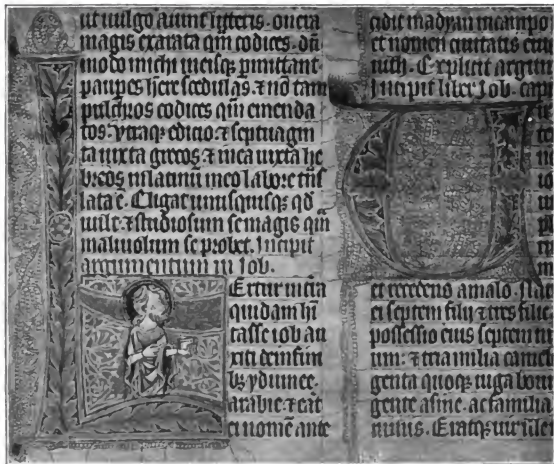 ut uulgo aiunt litteris. onera
magis exarata qm̄ codices. dū
modo michi meisqꝫ ꝑmittant
pauꝑes hēre scedulas. ⁊ nō tam
pulchros codices qm̄ emenda
tos. Vtraqꝫ edicio. ⁊ septuagin
ta iuxta grecos. ⁊ mea iuxta he
breos in latinū meo labore tn̄s
lata ē. Eligat unusquisqꝫ qd̄
uult. ⁊ studiosum se magis qm̄
maliuolum se probet. Incipit
argumentum in Job.
Ertur in
quidam hī
tasse iob au
de in fini
bꝫ ydumee.
arabie. ⁊ erāt
ei nomē ante
cidit madian in campo
et nomen ciuitatis eiu
Explicit argum
Incipit liber Job. cap
et recedens a malo. Nat
ei septem filij ⁊ tres filie
possessio eius septem
um: ⁊ tria milia camel
genta quoqꝫ iuga boum
gente asine. ac familia
nimis. Eratqꝫ uir ille